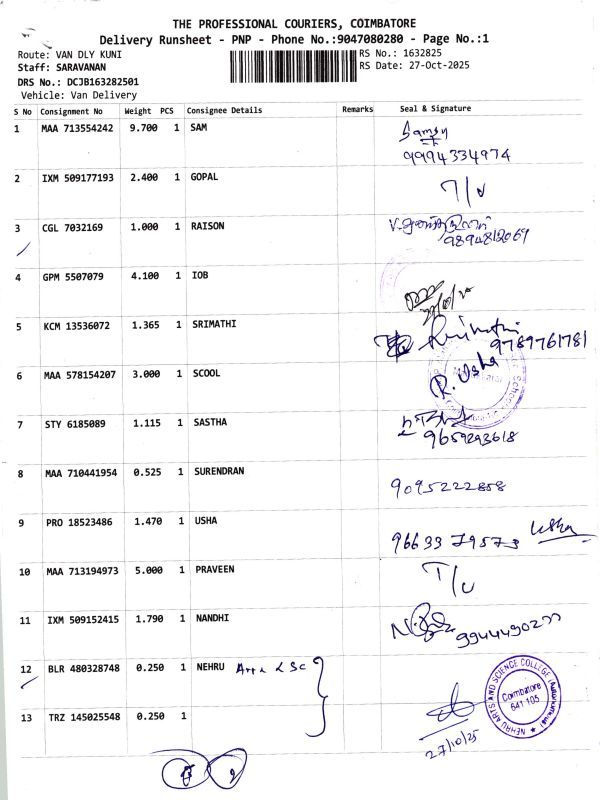 THE PROFESSIONAL COURIERS, COIMBATORE
Delivery Runsheet - PNP - Phone No.:9047080280 - Page No.:1
Route: VAN DLY KUNI
RS No.: 1632825
Staff: SARAVANAN
RS Date: 27-Oct-2025
DRS No.: DCJB163282501
Vehicle: Van Delivery
S No Consignment No Weight PCS Consignee Details Remarks Seal & Signature
1 MAA 713554242 9.700 1 SAM
9994334974
2 IXM 509177193 2.400 1 GOPAL T/U
3 CGL 7032169 1.000 1 RAISON
9894812069
4 GPM 5507079 4.100 1 IOB
5 KCM 13536072 1.365 1 SRIMATHI
9789761781
6 MAA 578154207 3.000 1 SCOOL R. Usha
7 STY 6185089 1.115 1 SASTHA
9659293618
8 MAA 710441954 0.525 1 SURENDRAN
9095222858
9 PRO 18523486 1.470 1 USHA
96633 79573 Usha
10 MAA 713194973 5.000 1 PRAVEEN T/U
11 IXM 509152415 1.790 1 NANDHI
9944490277
12 BLR 480328748 0.250 1 NEHRU Arts & SC
NEHRU ARTS AND SCIENCE COLLEGE (Autonomous)
Coimbatore
641 105
13 TRZ 145025548 0.250 1
27/10/25